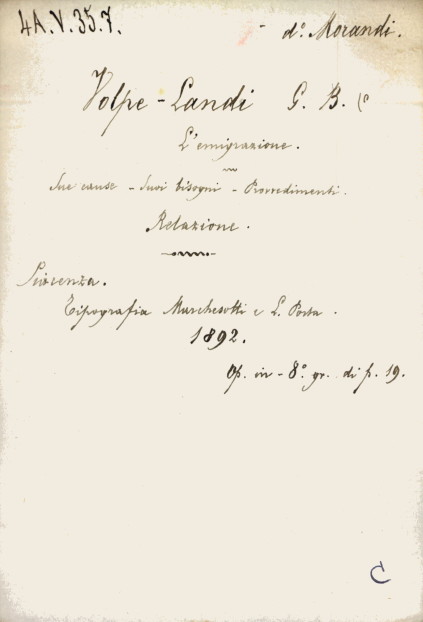 4A.V.35.7. - d.º Morandi.
Volpe-Landi G. B.
L'emigrazione.
Sue cause - Suoi bisogni - Provvedimenti.
Relazione.
Piacenza.
Tipografia Marchesotti e L. Porta.
1892.
Op. in-8.º gr. di p. 19.
C